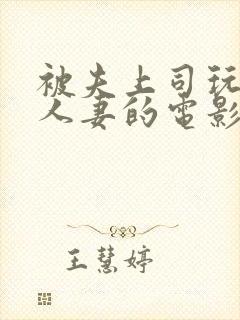 被夫上司玩
人妻的电影
王慧婷